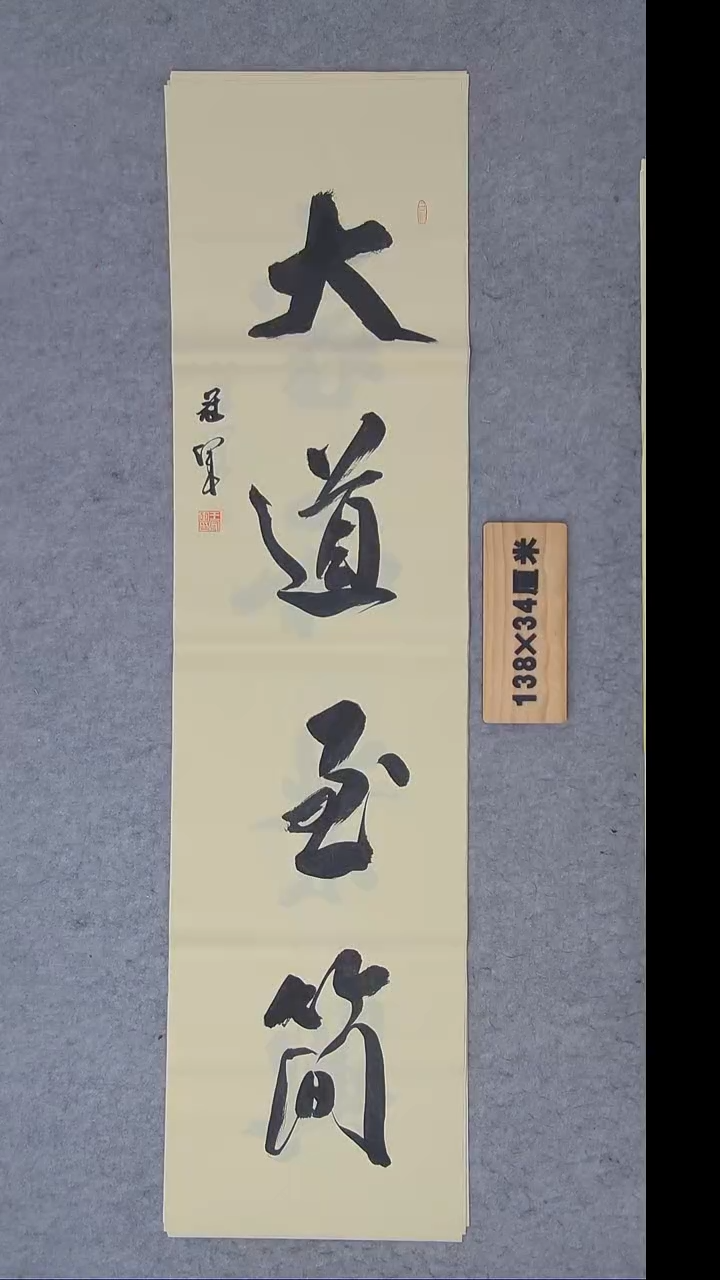 大道至简
冠军
138×34厘米